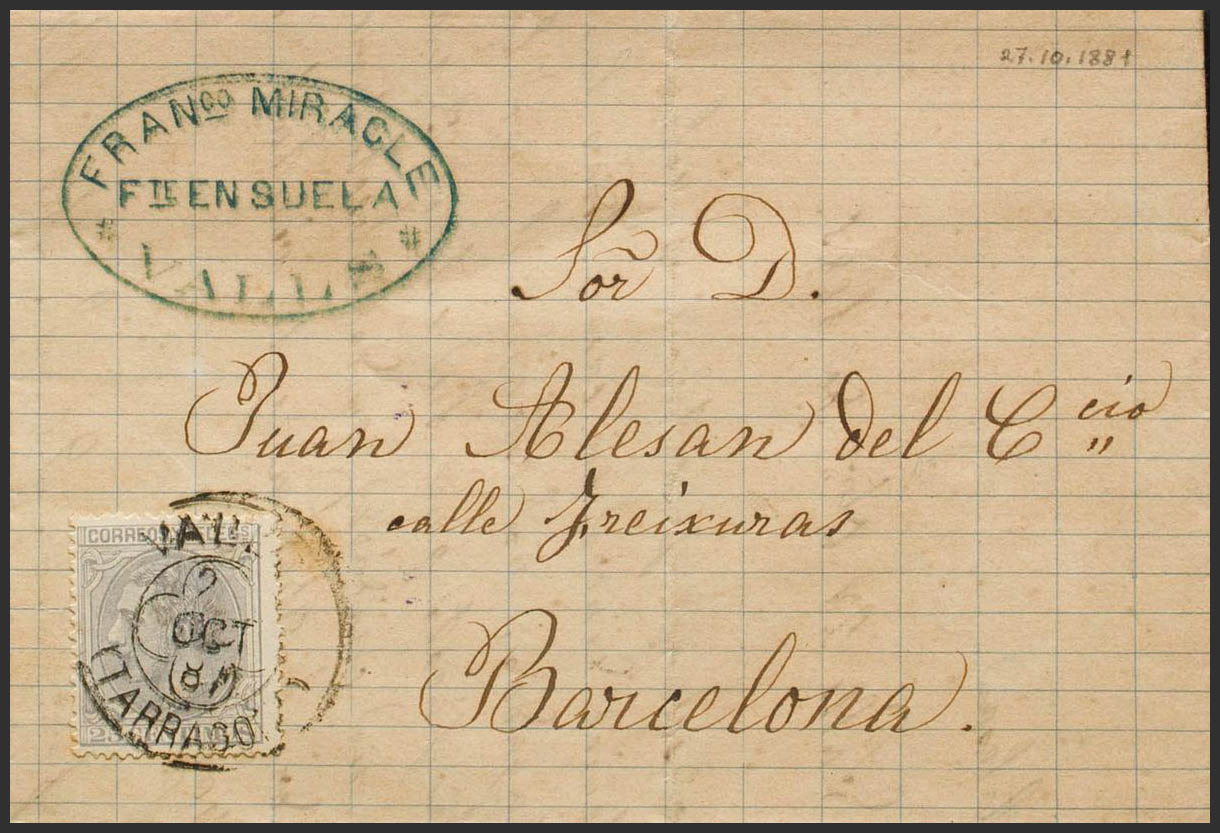 27.10.1881
FRANco MIRACLE
FTE EN SUELA
VALLS
Sor D.
Juan Alesan del Ccio
calle Freixuras
Barcelona.
CORREOS Y TELEGs
VALLS
2
OCT
81
(TARRAGO